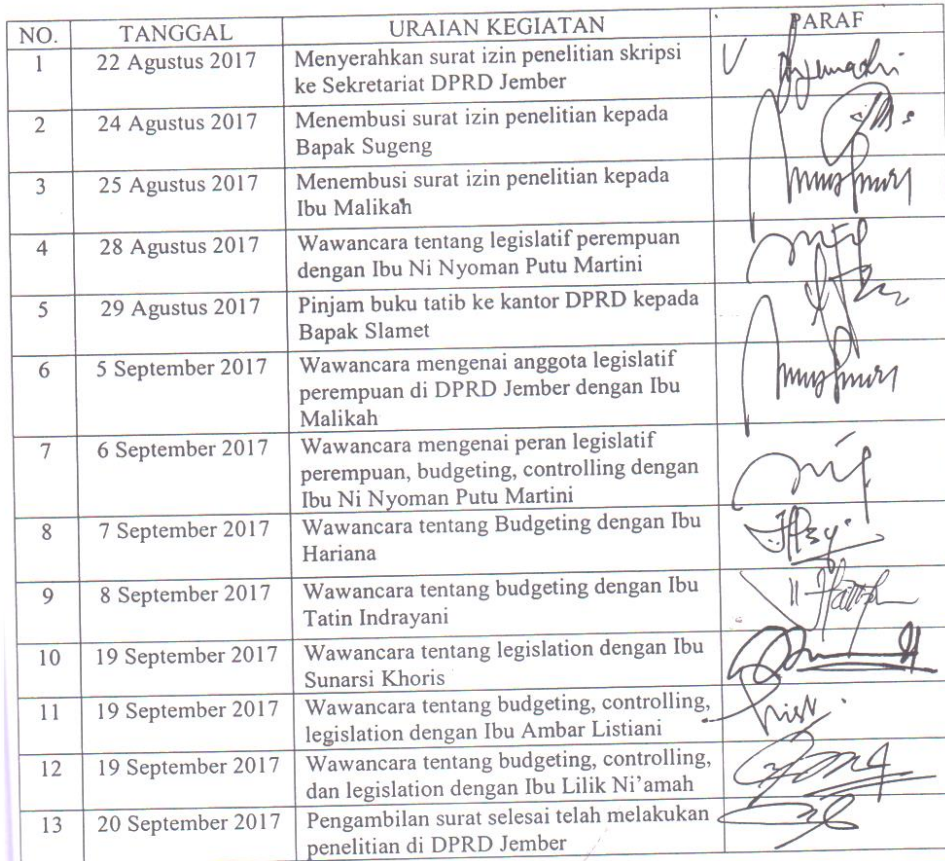 NO. TANGGAL URAIAN KEGIATAN PARAF
1 22 Agustus 2017 Menyerahkan surat izin penelitian skripsi
ke Sekretariat DPRD Jember
2 24 Agustus 2017 Menembusi surat izin penelitian kepada
Bapak Sugeng
3 25 Agustus 2017 Menembusi surat izin penelitian kepada
Ibu Malikah
4 28 Agustus 2017 Wawancara tentang legislatif perempuan
dengan Ibu Ni Nyoman Putu Martini
5 29 Agustus 2017 Pinjam buku tatib ke kantor DPRD kepada
Bapak Slamet
6 5 September 2017 Wawancara mengenai anggota legislatif
perempuan di DPRD Jember dengan Ibu
Malikah
7 6 September 2017 Wawancara mengenai peran legislatif
perempuan, budgeting, controlling dengan
Ibu Ni Nyoman Putu Martini
8 7 September 2017 Wawancara tentang Budgeting dengan Ibu
Hariana
9 8 September 2017 Wawancara tentang budgeting dengan Ibu
Tatin Indrayani
10 19 September 2017 Wawancara tentang legislation dengan Ibu
Sunarsi Khoris
11 19 September 2017 Wawancara tentang budgeting, controlling,
legislation dengan Ibu Ambar Listiani
12 19 September 2017 Wawancara tentang budgeting, controlling,
dan legislation dengan Ibu Lilik Ni'amah
13 20 September 2017 Pengambilan surat selesai telah melakukan
penelitian di DPRD Jember